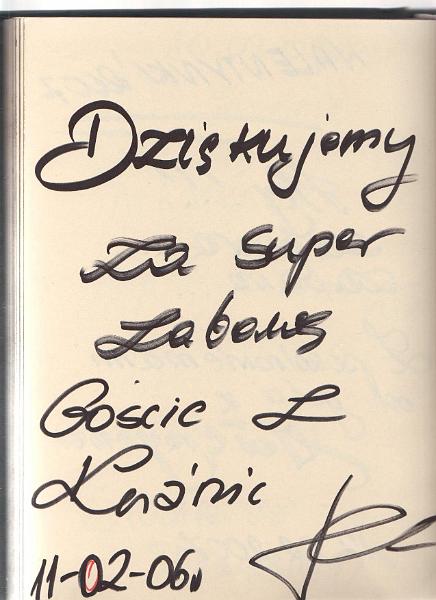 Dziękujemy
za super
zabawę
Goście z
11-02-06r